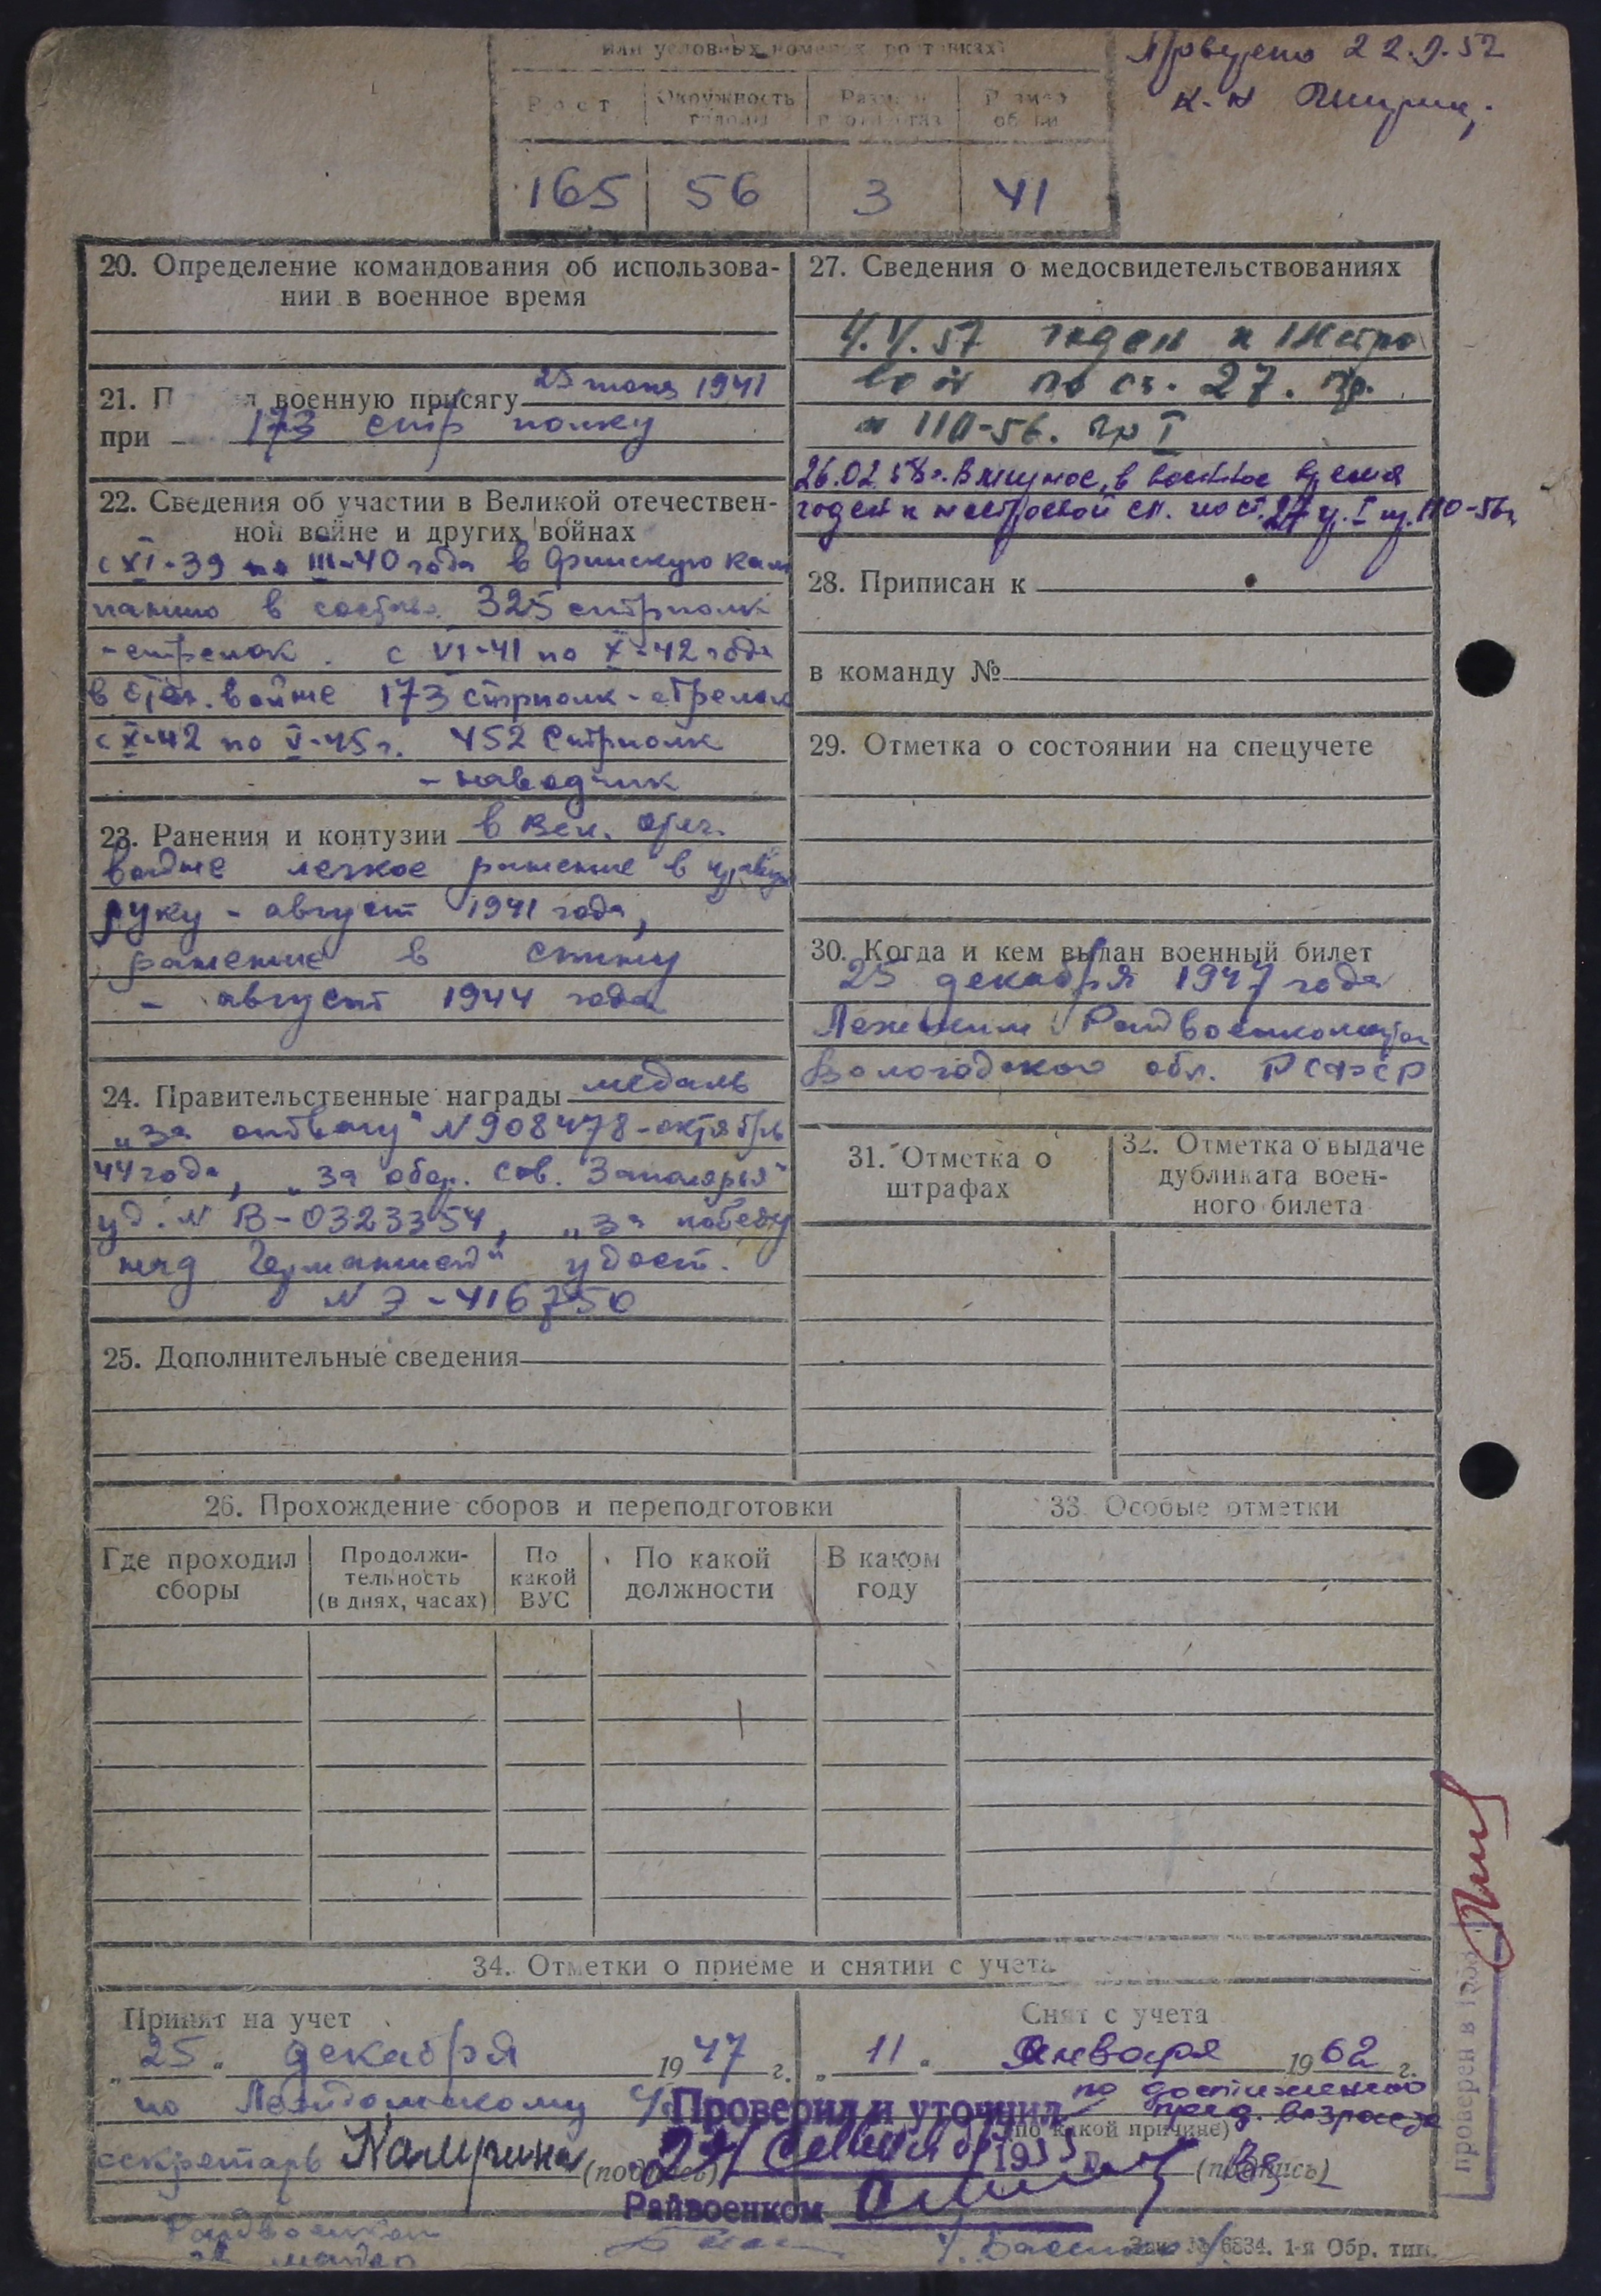 или условных номерах ростовках)
Проверено 22.9.52
Рост
Окружность головы
Размер противогаз
Размер обуви
165 56 3 41
20. Определение командования об использова-
нии в военное время
21. П л военную присягу 25 июня 1941
при 173 стр полку
22. Сведения об участии в Великой отечествен-
ной войне и других войнах
с XI-39 по III-40 года в Финскую кам
панию в составе 325 стрполк
-стрелок. с VI-41 по X-42 года
в Отеч. войне 173 стрполк-стрелок
с X-42 по V-45 г. 452 Стрполк
- наводчик
23. Ранения и контузии в Вел. отеч.
войне легкое ранение в правую
руку - август 1941 года,
ранение в спину
- август 1944 года
24. Правительственные награды медаль
„за отвагу" N 908478-октябрь
44 года, „за обор. Сов. Заполярья"
уд. N В-0323354, „за победу
над Германией" удост.
N Э-416750
25. Дополнительные сведения
27. Сведения о медосвидетельствованиях
4.V.57 годен к нестро
вой по ст. 27. пр.
110-56. гр I
26.02.58г. В мирное, в военное время
годен к нестроевой сл. по ст. 27 г. I пр. 110-56г
28. Приписан к
в команду №
29. Отметка о состоянии на спецучете
30. Когда и кем выдан военный билет
25 декабря 1947 года
Лежским Райвоенкоматом
Вологодской обл. РСФСР
31. Отметка о
штрафах
32. Отметка о выдаче
дубликата воен-
ного билета
26. Прохождение сборов и переподготовки
Где проходил сборы
Продолжи-
тельность
(в днях, часах)
По какой ВУС
По какой должности
В каком году
33. Особые отметки
34. Отметки о приеме и снятии с учета
Принят на учет
„25" декабря 1947 г.
по
секретарь (подпись)
Снят с учета
„11" Января 1962 г.
по достижению
пред. возраста
(по какой причине)
(подпись)
Проверил и уточнил
195 г.
Райвоенком
проверен в
Зак. № 6834. 1-я Обр. тип.